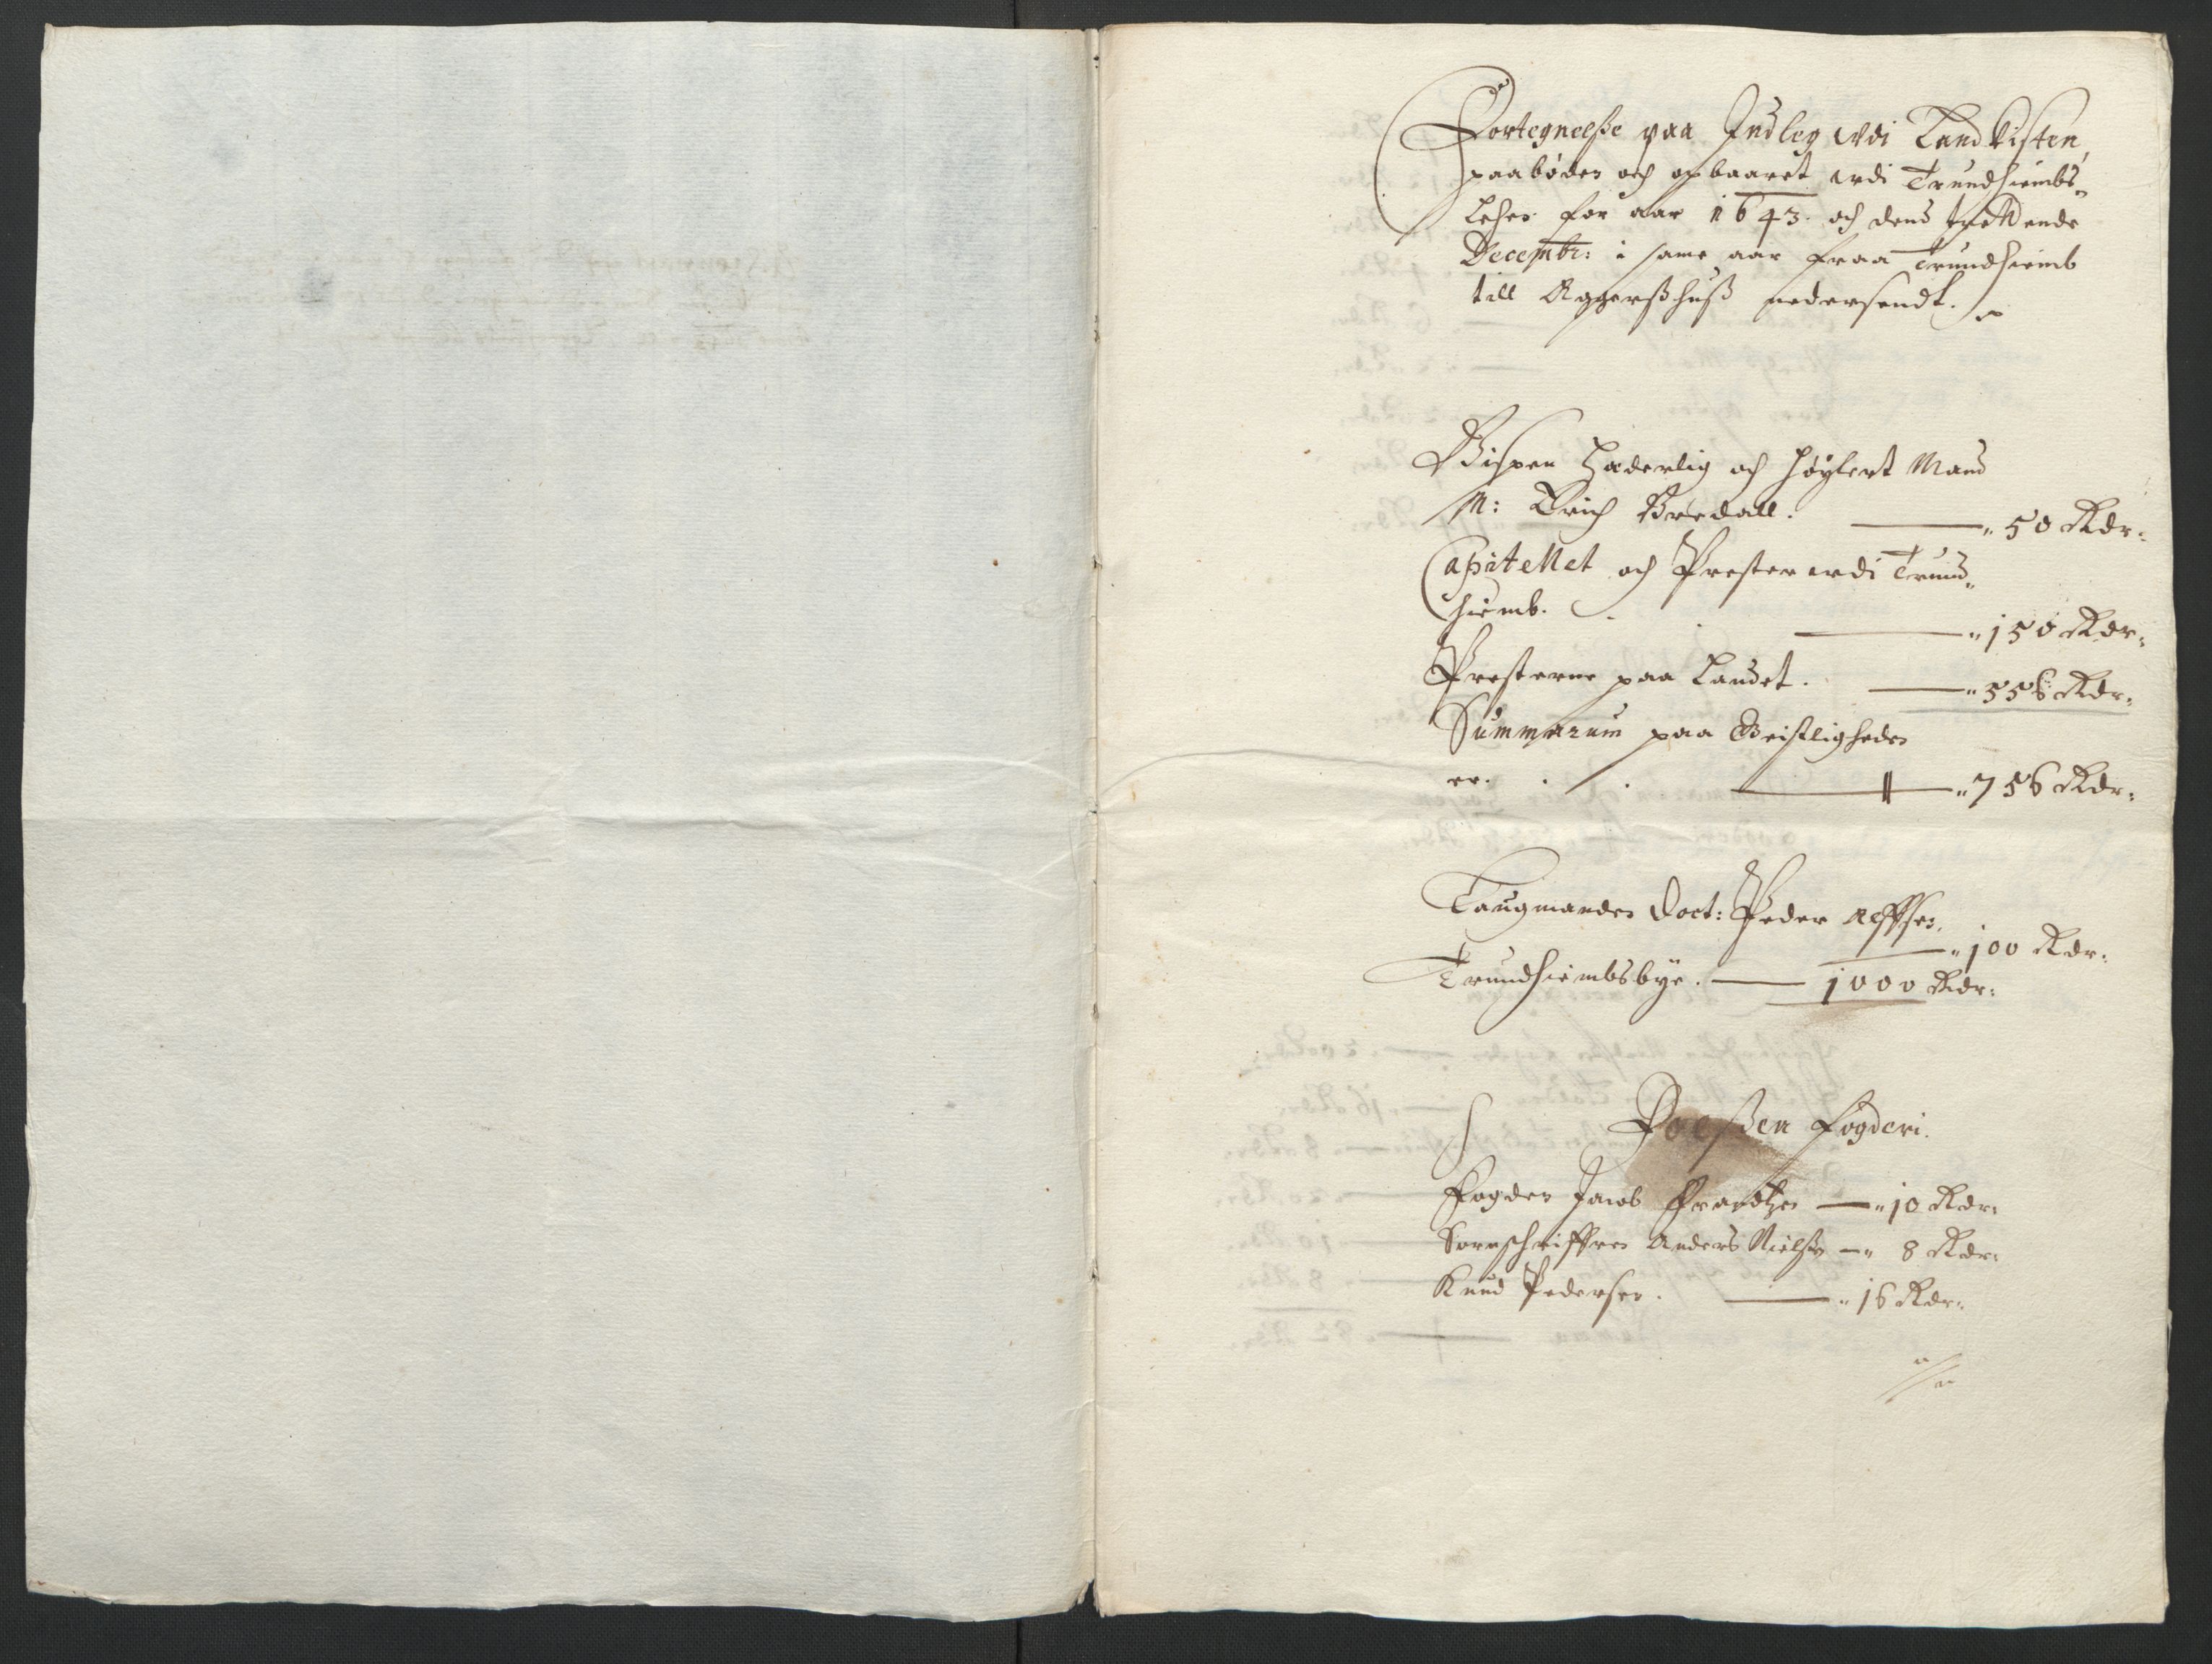 Fortegnelße paa Indleg udi Landkisten,
paabøden och opbaaret udi Trundhiembs-
Lehen for aar 1643. och dend trettende
Decembr: i same aar fraa Trundhiemb
till Aggerßhuß nedersendt.
Bispen Hæderlig och Høylert Mand
M: Erich Bredall. 50 Rdr:
Capitellet och Prester udi Trund-
hiemb. 150 Rdr:
Presterne paa Landet. 556 Rdr:
Summarum paa Geistligheden
er. 756 Rdr:
Laugmanden Doct: Peder Alffsen,
100 Rdr:
Trundhiembsbye. 1000 Rdr:
Foeßen Fogderi.
Fogden Jacob Frandtzen 10 Rdr:
Sorenschriffren Anders Nielßen 8 Rdr:
Knud Pedersen. 16 Rdr: